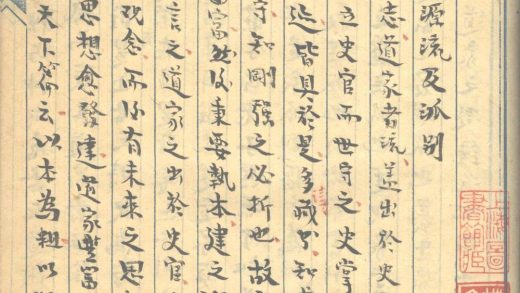 源流及派别
志道家者流盖出於史
立史官而世守之史掌
皆具於是多
守知剛强之必折也故
富然後秉要執本建之
言之道家之出於史官
观念而後有未来之思
思想愈發達道家豐富
天下篇云以本為粗以
上海圖
書館